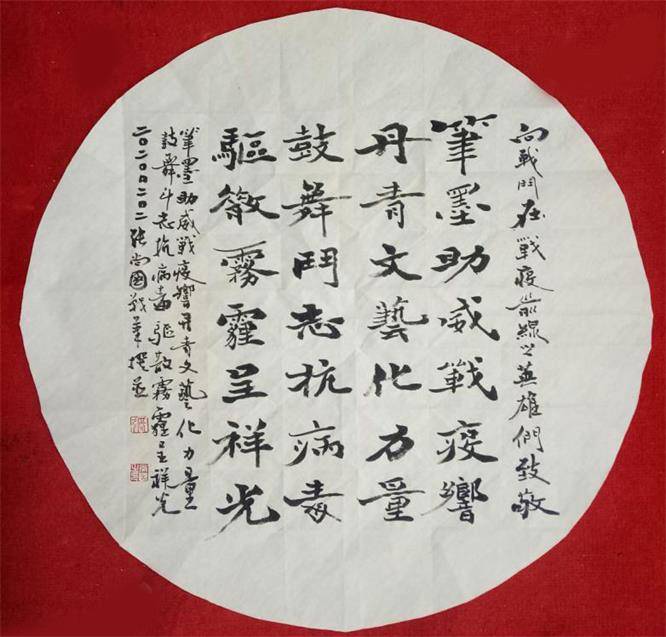 向戰鬥在戰疫前線之英雄們致敬
筆墨助威戰疫響
丹青文藝化力量
鼓舞鬥志抗病毒
驅散霧霾呈祥光
筆墨助威戰疫響丹青文藝化力量
鼓舞斗志抗病毒驅散霧霾呈祥光
二〇二〇〇二〇二張尚國